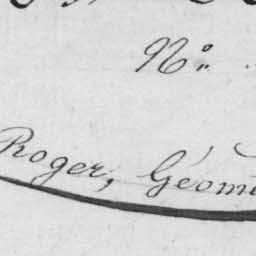 N°.
Roger, Géom